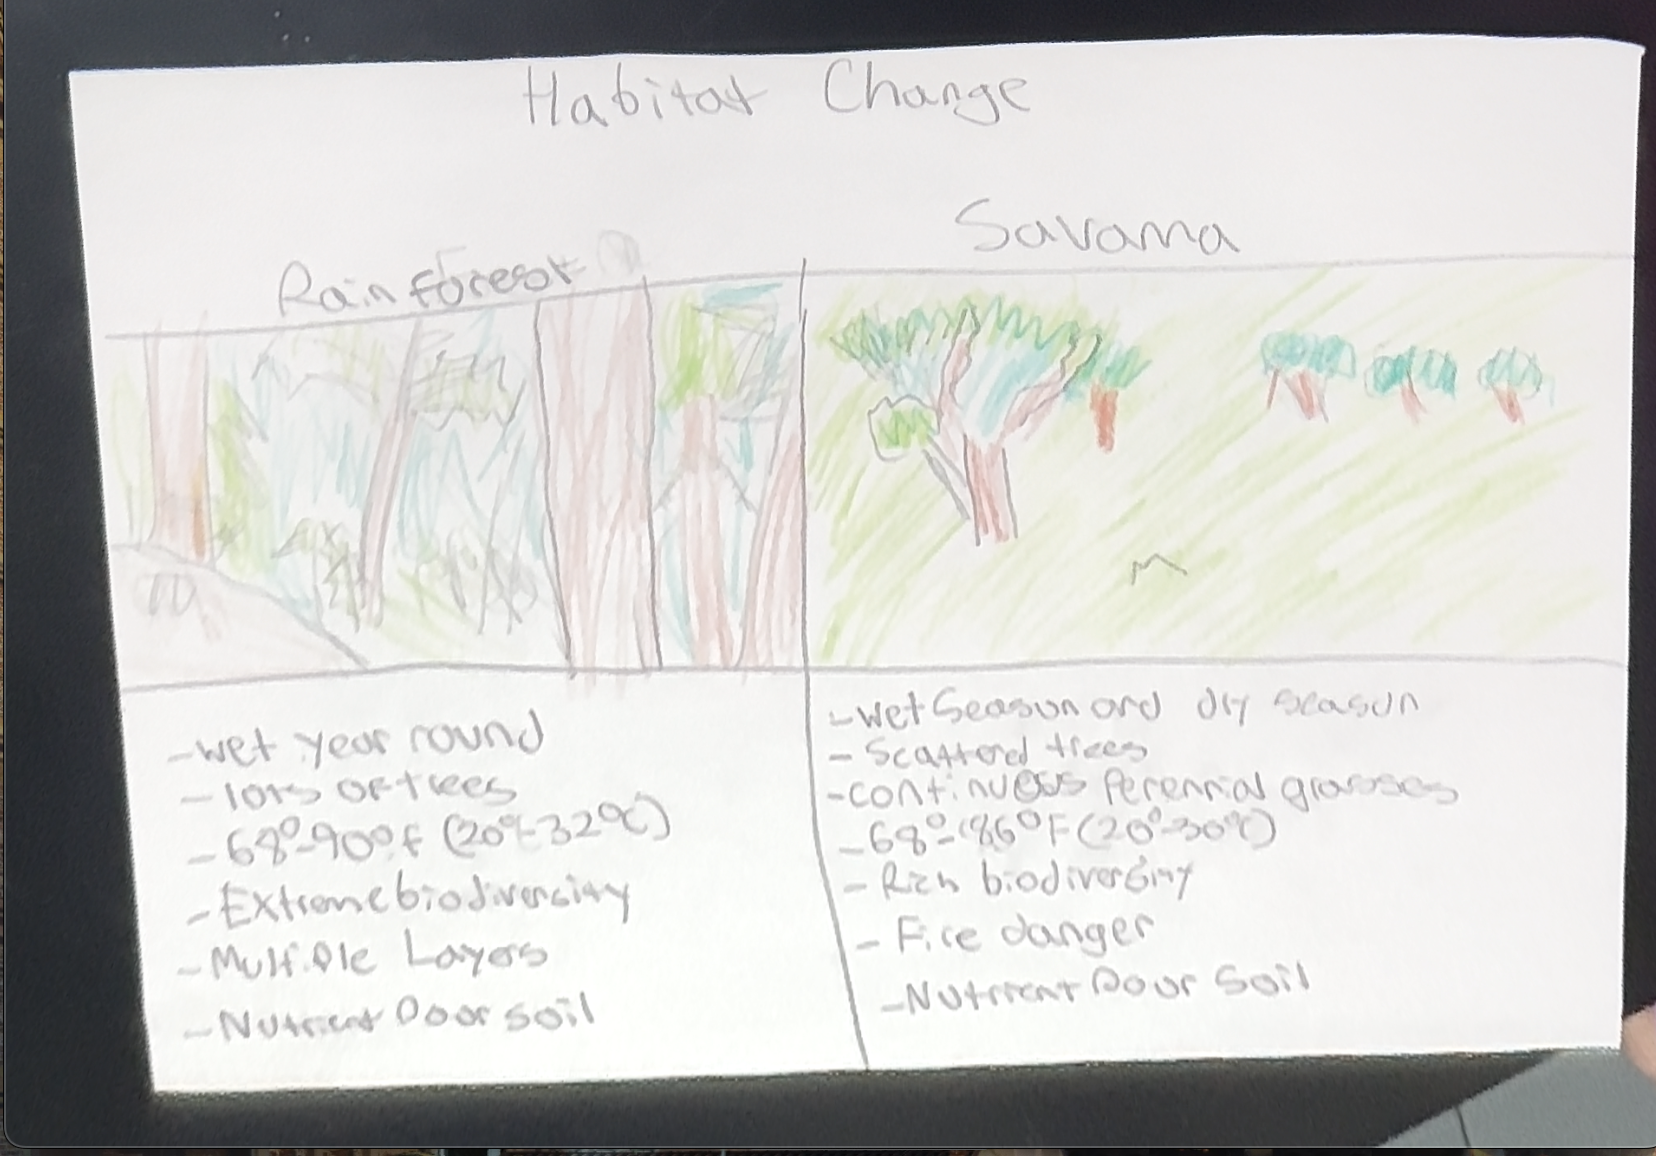 Habitat Change
Rainforest
Savanna
- wet year round
- lots of trees
- 68°-90°f (20°-32°C)
- Extreme biodiversity
- Multiple Layers
- Nutrient Poor soil
- wet Season and dry season
- Scatterd trees
- continuous Perennial grasses
- 68°-86°F (20°-30°C)
- Rich biodiversity
- Fire danger
- Nutrient Poor Soil